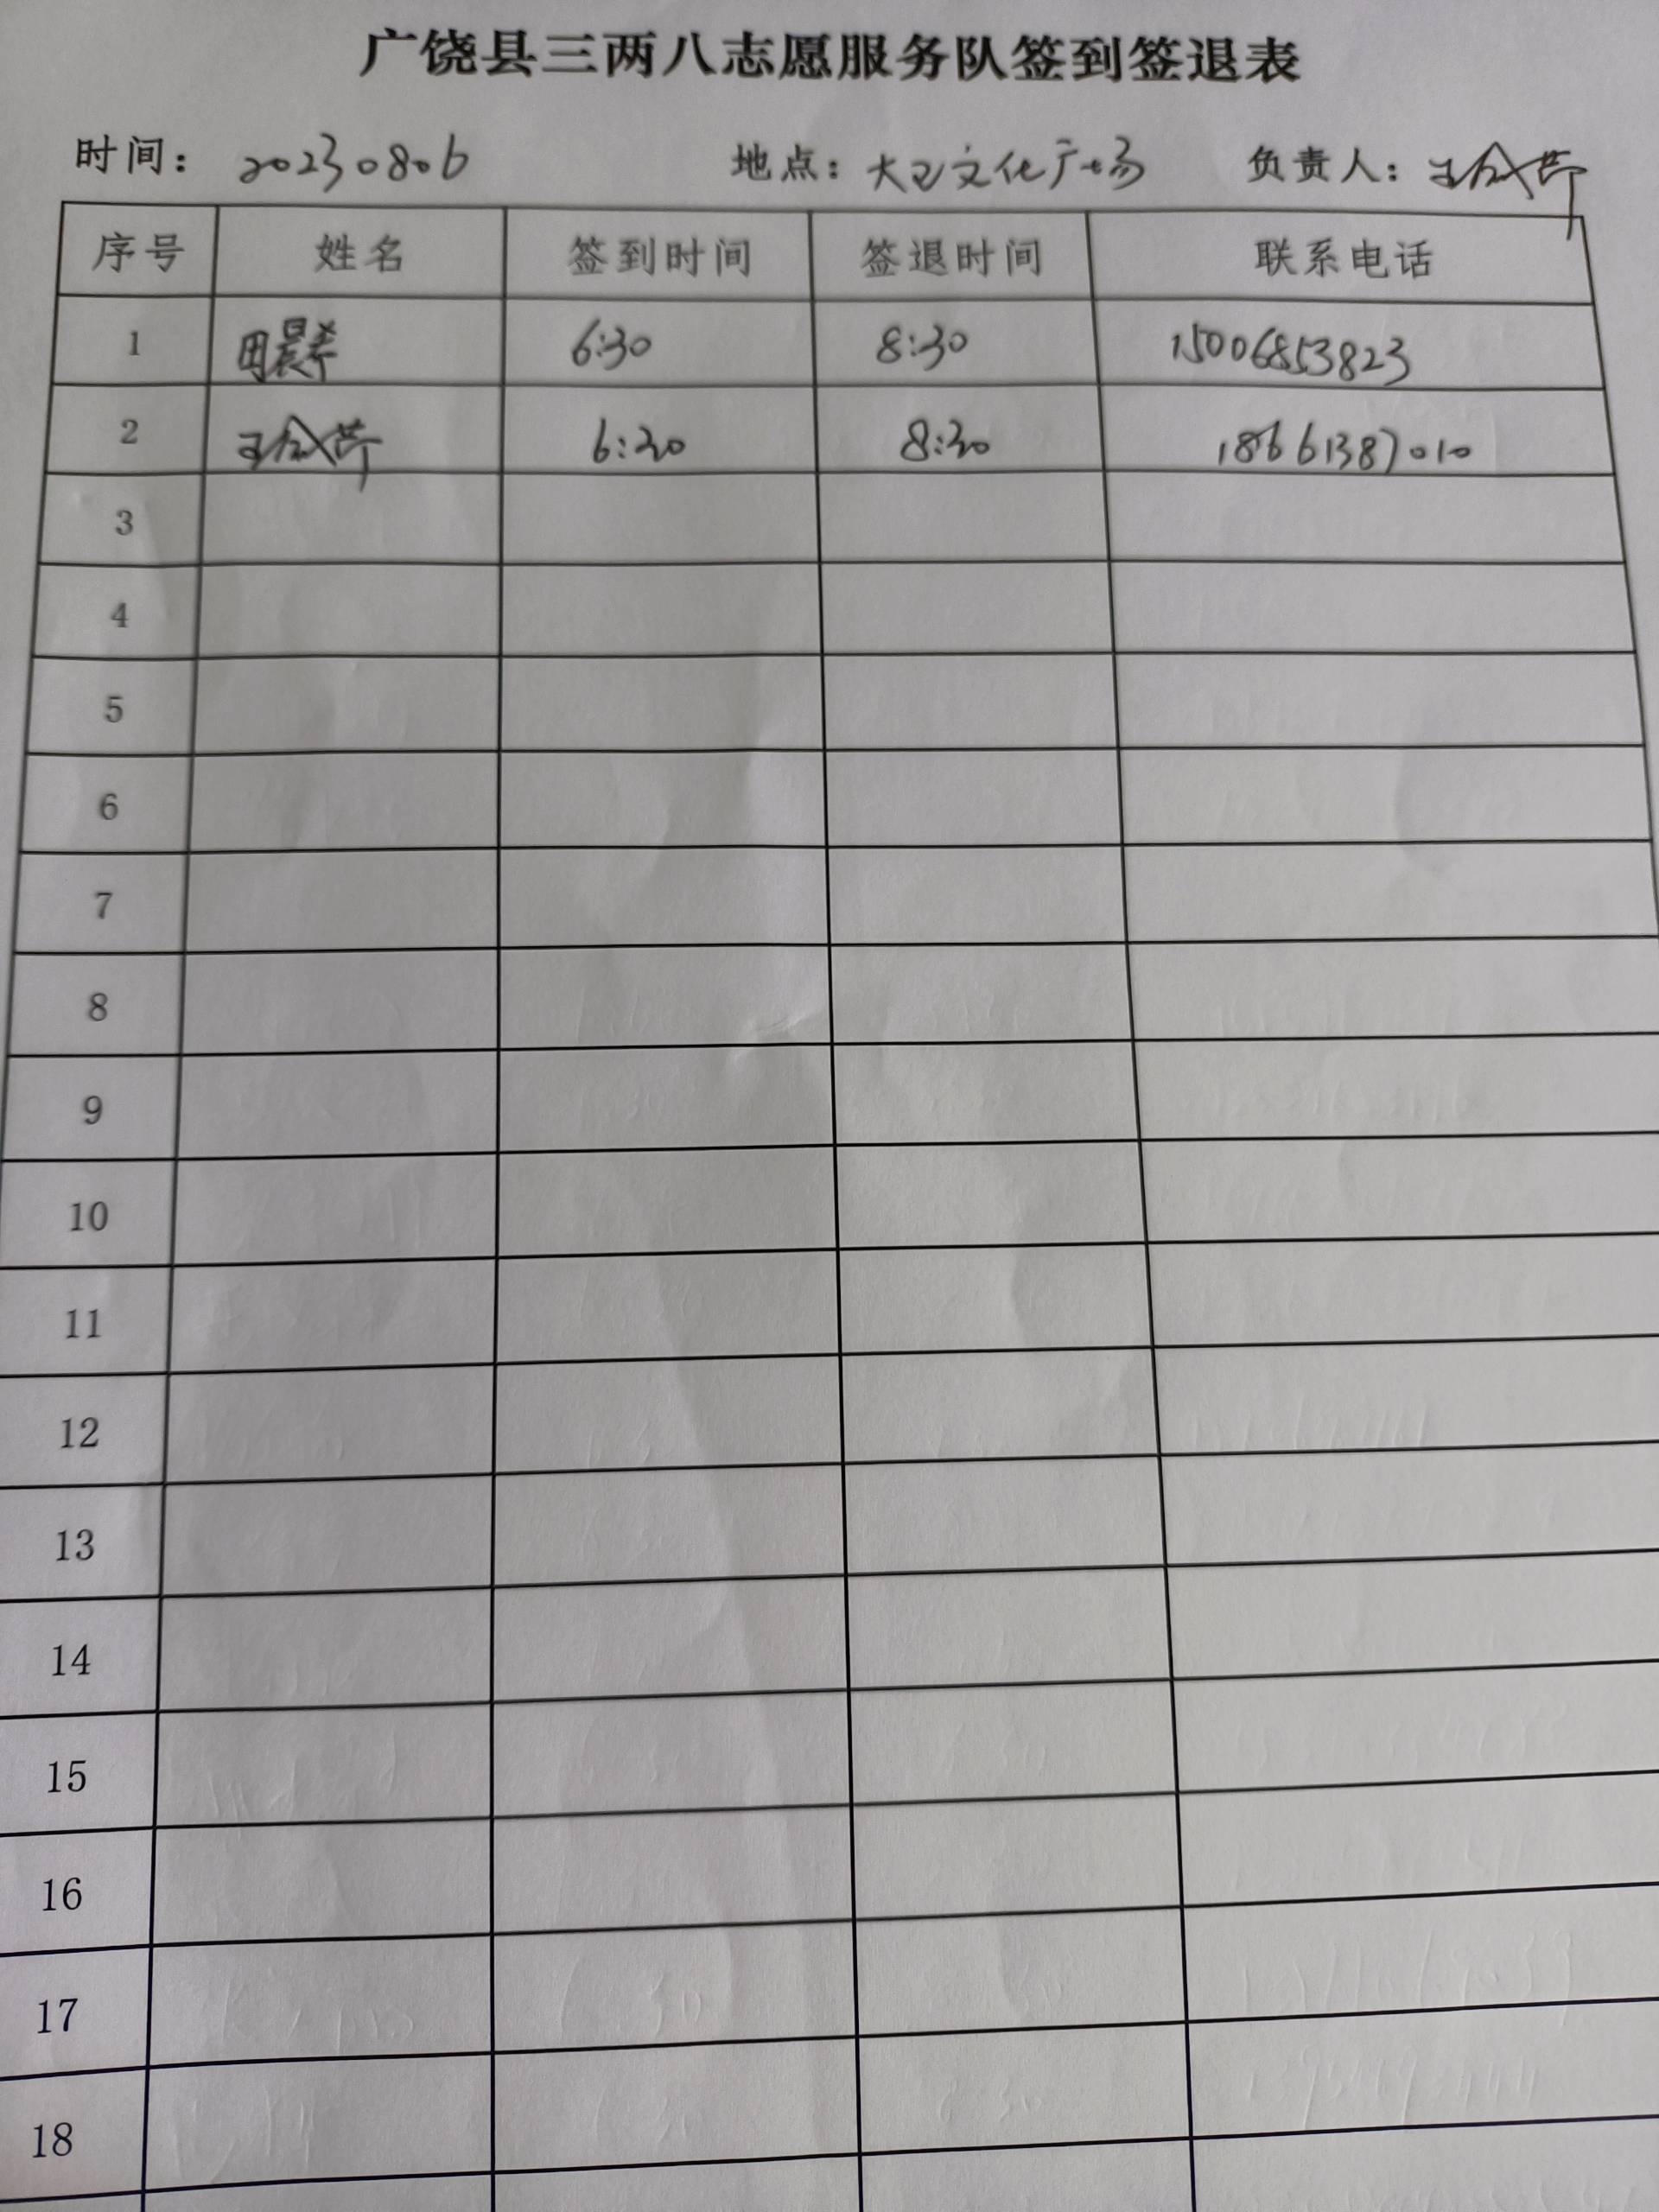 广饶县三两八志愿服务队签到签退表
时间： 20230806 地点：大王文化广场 负责人：
序号 姓名 签到时间 签退时间 联系电话
1 6:30 8:30 15006853823
2 6:30 8:30 18661387010
3
4
5
6
7
8
9
10
11
12
13
14
15
16
17
18